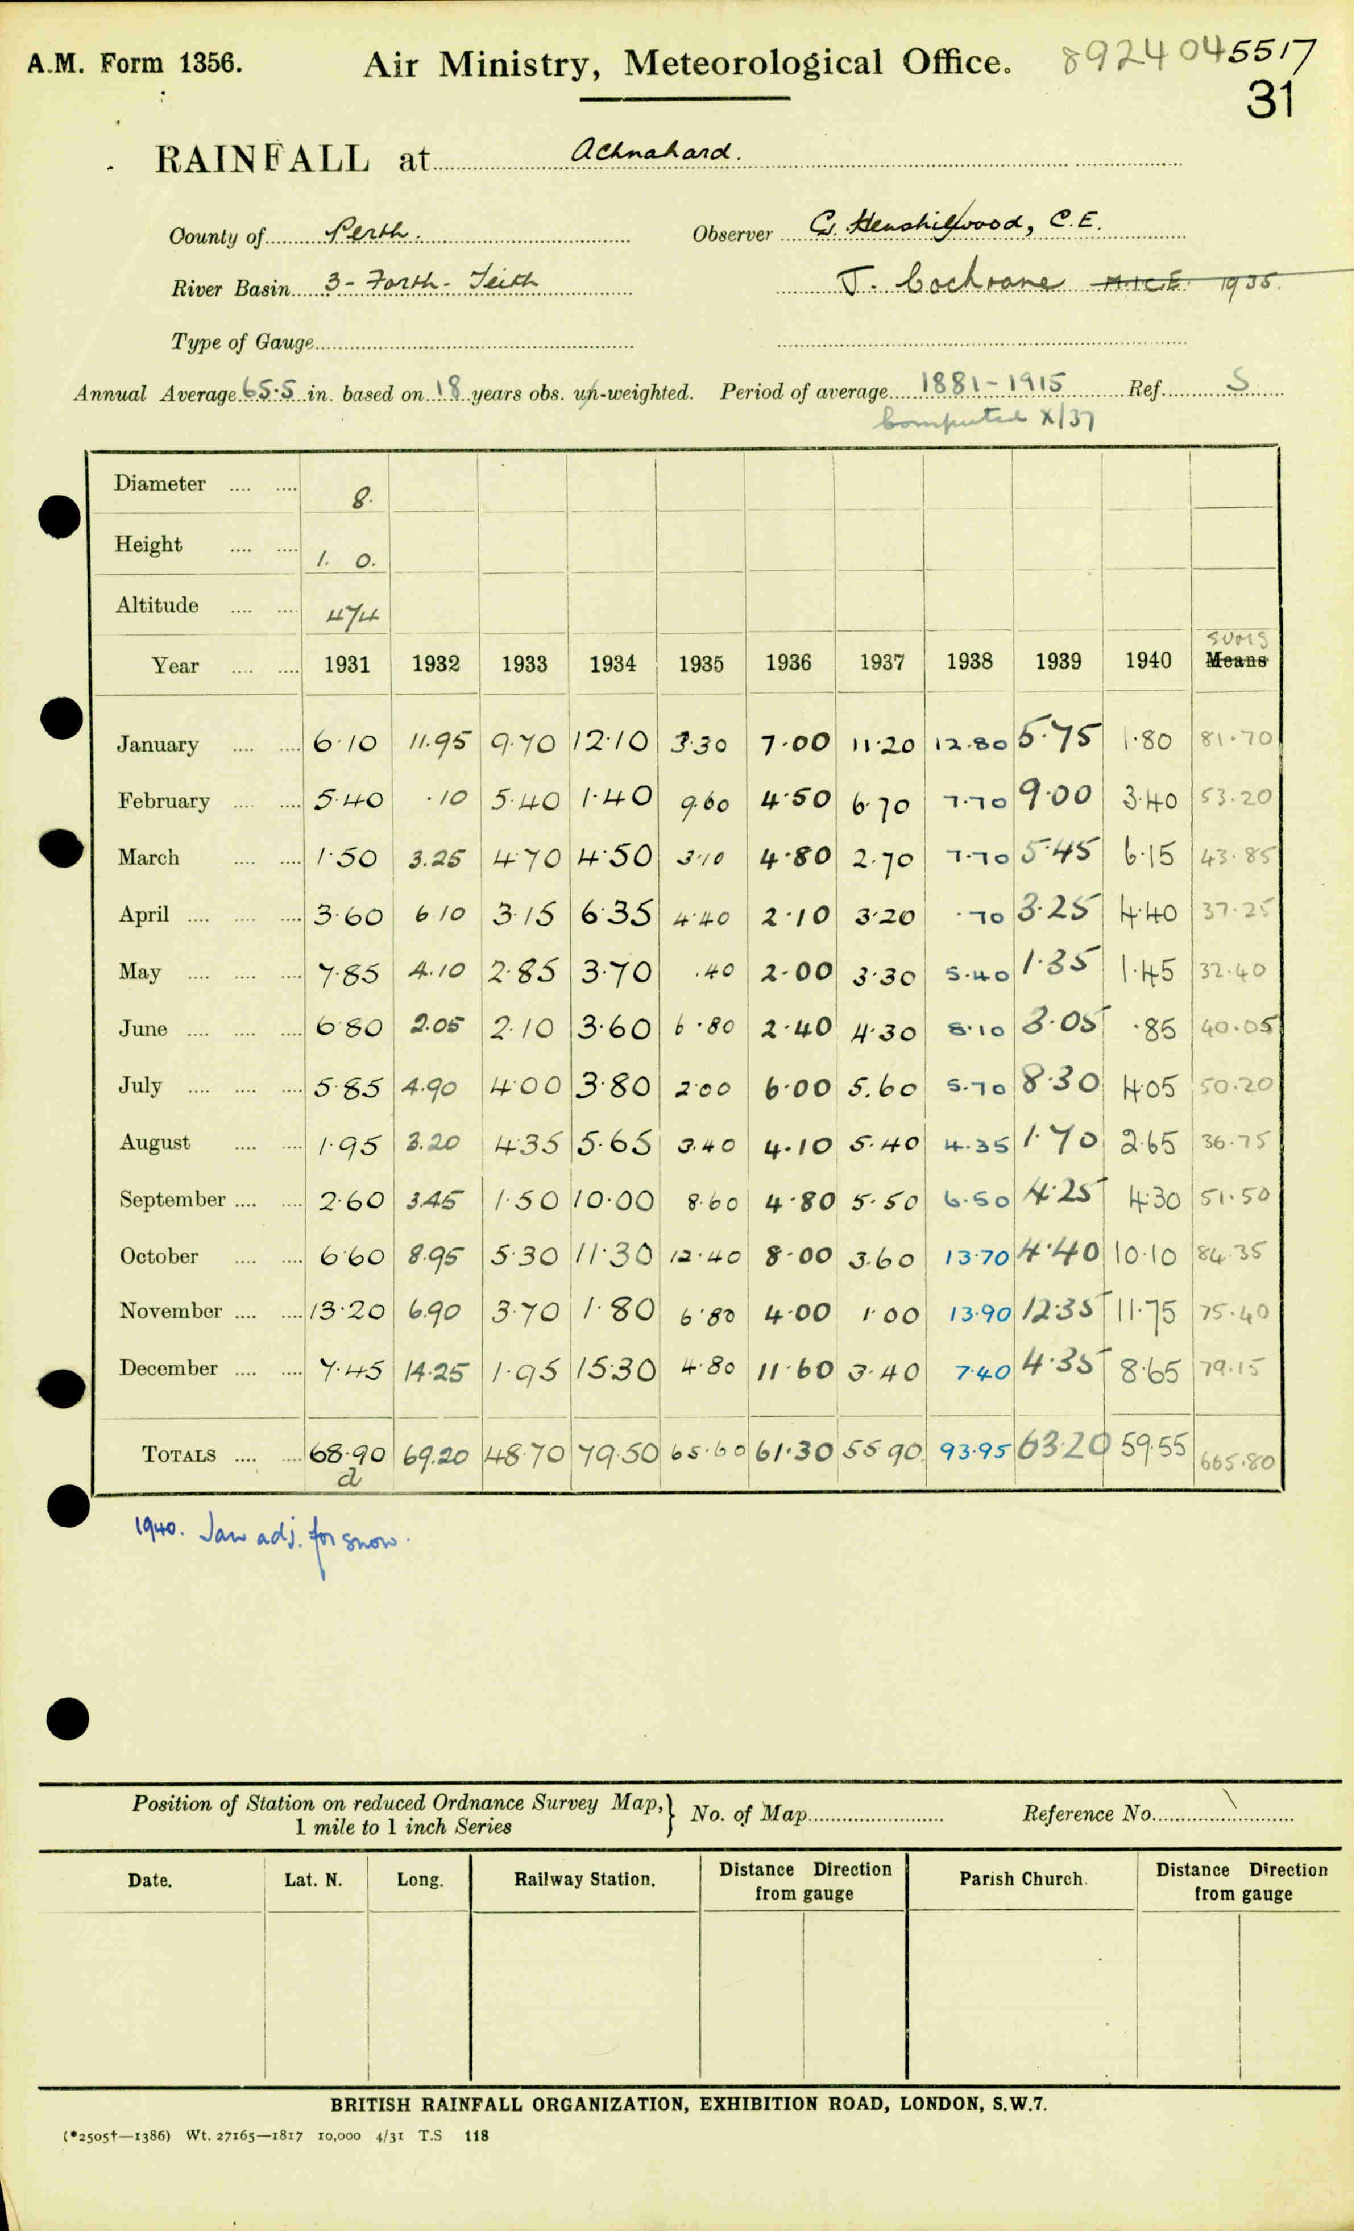 A.M. Form 1356. Air Ministry, Meteorological Office. 892404 5517
31
RAINFALL at Achnahard.
County of Perth. Observer G. Henshilwood, C.E.
River Basin 3 - Forth - Teith J. Cochrane M.I.C.E. 1935.
Type of Gauge
Annual Average 65.5 in. based on 18 years obs. un-weighted. Period of average 1881-1915 Ref. S
Computed X/37
Diameter 8.
Height 1. 0.
Altitude 474
SUMS
Year 1931 1932 1933 1934 1935 1936 1937 1938 1939 1940 Means
January 6.10 11.95 9.70 12.10 3.30 7.00 11.20 12.80 5.75 1.80 81.70
February 5.40 .10 5.40 1.40 9.60 4.50 6.70 7.70 9.00 3.40 53.20
March 1.50 3.25 4.70 4.50 3.10 4.80 2.70 7.70 5.45 6.15 43.85
April 3.60 6.10 3.15 6.35 4.40 2.10 3.20 .70 3.25 4.40 37.25
May 7.85 4.10 2.85 3.70 .40 2.00 3.30 5.40 1.35 1.45 32.40
June 6.80 2.05 2.10 3.60 6.80 2.40 4.30 8.10 3.05 .85 40.05
July 5.85 4.90 4.00 3.80 2.00 6.00 5.60 5.70 8.30 4.05 50.20
August 1.95 3.20 4.35 5.65 3.40 4.10 5.40 4.35 1.70 2.65 36.75
September 2.60 3.45 1.50 10.00 8.60 4.80 5.50 6.50 4.25 4.30 51.50
October 6.60 8.95 5.30 11.30 12.40 8.00 3.60 13.70 4.40 10.10 84.35
November 13.20 6.90 3.70 1.80 6.80 4.00 1.00 13.90 12.35 11.75 75.40
December 7.45 14.25 1.95 15.30 4.80 11.60 3.40 7.40 4.35 8.65 79.15
TOTALS 68.90 69.20 48.70 79.50 65.60 61.30 55.90 93.95 63.20 59.55 665.80
d
1940. Jan adj. for snow.
Position of Station on reduced Ordnance Survey Map, } No. of Map Reference No.
1 mile to 1 inch Series
Date. Lat. N. Long. Railway Station. Distance Direction Parish Church. Distance Direction
from gauge from gauge
BRITISH RAINFALL ORGANIZATION, EXHIBITION ROAD, LONDON, S.W.7.
(*2505†—1386) Wt. 27165—1817 10,000 4/31 T.S 118